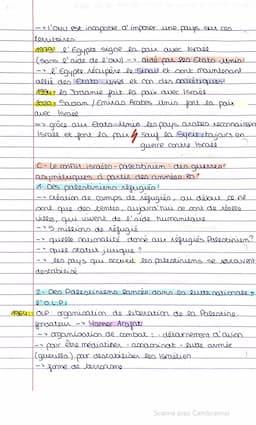 --> l'ONU est incapable d'imposer une pays sur ces
territoires
1979: l'Egypte signe la paix avec Israël
(sans l'aide de l'ONU) --> aidé par les Etats-Unis
--> l'Egypte récupère le Sinaï et sont maintenant
allié des Etats-Unis et des
1994: la Jordanie fait la paix avec Israël
2020: / Emirats Arabes Unis font la paix
avec Israël
=> grâce aux Etats-Unis les pays arabes reconnaissent
Israël et font la paix / sauf la Syrie tjrs en
guerre contre Israël
C- Le conflit israélo-palestinien: des guerres
asymétriques à partir des années
1. Des palestiniens réfugiés
--> création de camps de réfugiés, au début ce ne
sont que des tentes, aujourd'hui ce sont de réelles
villes, qui vivent de l'aide humanitaire
--> 5 millions de réfugié
--> quelle nationalité donné aux réfugiés Palestinien?
--> quel statut juridique?
--> les pays qui accueil les palestiniens se retrouvent
déstabilisé
2- Des Palestiniens lancés dans la lutte nationale:
l'O.L.P
1964: OLP organisation de libération de la Palestine
fondateur --> Yasser Arafat
--> organisation de combat: - détournement d'avion
--> pour être médiatiser - assassinat - lutte armée
(guerilla) pour déstabiliser les Israélien
--> forme de terrorisme
Scanné avec CamScanner